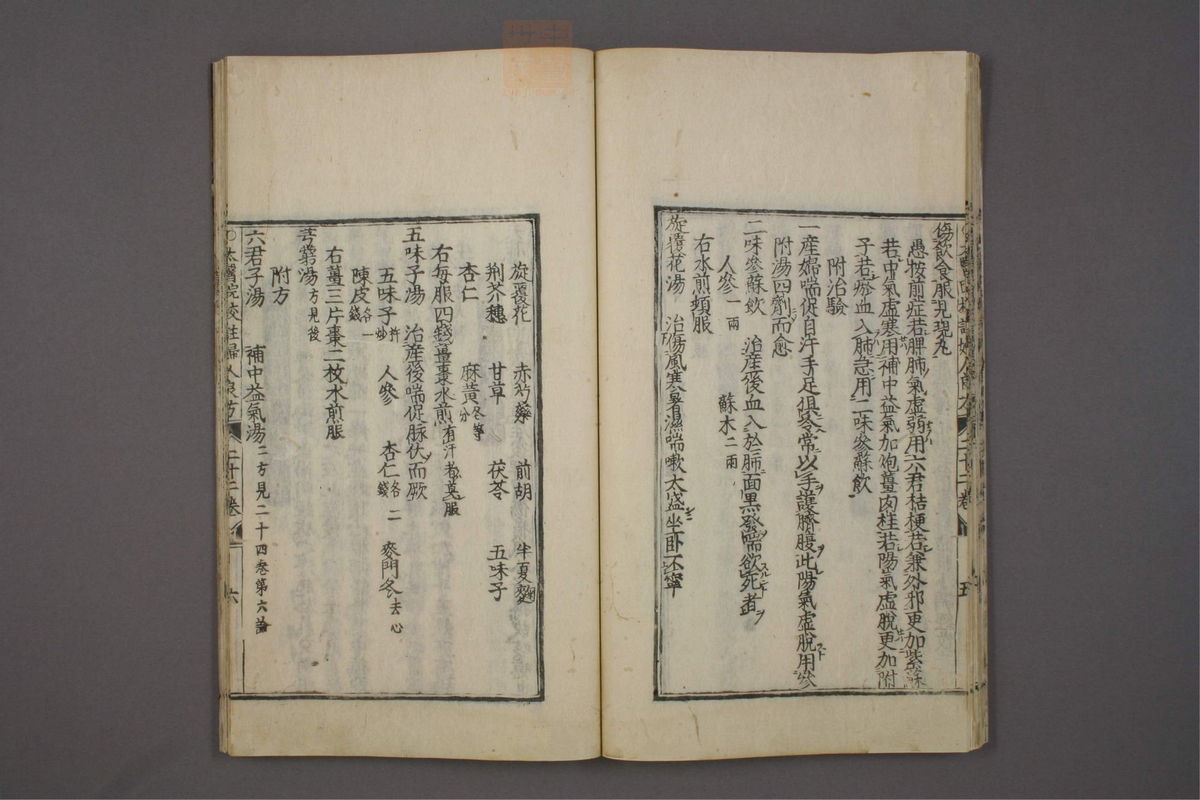 傷飲食服見晛丸
愚按前症若脾肺氣虛弱用六君桔梗若兼外邪更加紫蘇
若中氣虛寒用補中益氣加炮薑肉桂若陽氣虛脫更加附
子若瘀血入肺急用二味參蘇飲
附治驗
一產婦喘促自汗手足俱冷常以手護臍腹此陽氣虛脫用參
附湯四劑而愈
二味參蘇飲 治產後血入於肺面黑發喘欲死者
人參一兩 蘇木二兩
右水煎頻服
旋復花湯 治傷風寒暑濕喘嗽太盛坐臥不寧
旋覆花 赤芍藥 前胡 半夏麯
荊芥穗 甘草 茯苓 五味子
杏仁 麻黃各等分
右每服四錢薑棗水煎有汗者莫服
五味子湯 治產後喘促脉伏而厥
五味子杵炒 人參 杏仁各二錢 麥門冬去心
陳皮各一錢
右薑三片棗二枚水煎服
芎藭湯方見後
附方
六君子湯 補中益氣湯二方見二十四卷第六論
太醫院校註婦人良方 二十二卷 六